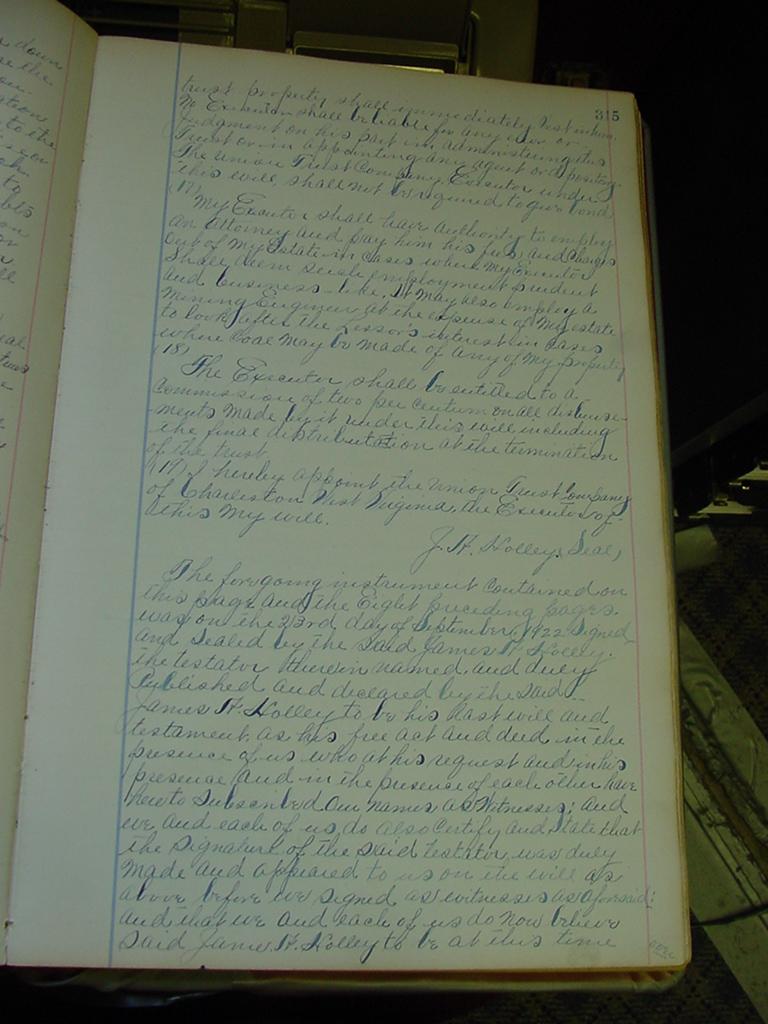 315
trust property shall immediately vest in him.
No Executor shall be liable for any error or
judgment on his part in administering this
Trust or in appointing any agent or depository.
The Union Trust Company, Executor under
this will, shall not be required to give bond
(17)
My Executor shall have authority to employ
an Attorney and pay him his fees and charges
out of my Estate in cases where my Executor
shall deem such employment prudent
and business-like. It may also employ a
Mining Engineer at the expense of my estate
to look after the Lessor's interest in cases
where Coal may be made of any of my property
(18)
The Executor shall be entitled to a
Commission of two per centum on all disburse-
ments made by it under this will including
the final distribution at the termination
of the trust.
(19) I hereby appoint the Union Trust Company
of Charleston West Virginia, the Executor of
this my will.
J. H. Holley, Seal,
The foregoing instrument contained on
this page and the Eight preceding pages.
was on the 23rd day of September, 1922 Signed
and sealed by the said James H. Holley.
the testator therein named, and duly
Published and declared by the said
James H. Holley to be his last will and
testament, as his free act and deed in the
presence of us who at his request and in his
presence, and in the presence of each other have
hereto Subscribed Our names as Witnesses; and
we and each of us, do also Certify and State that
the signature of the said testator, was duly
made and appeared to us on the will as
above before we signed as witnesses as aforesaid;
and that we and each of us do now believe
said James H. Holley to be at this time